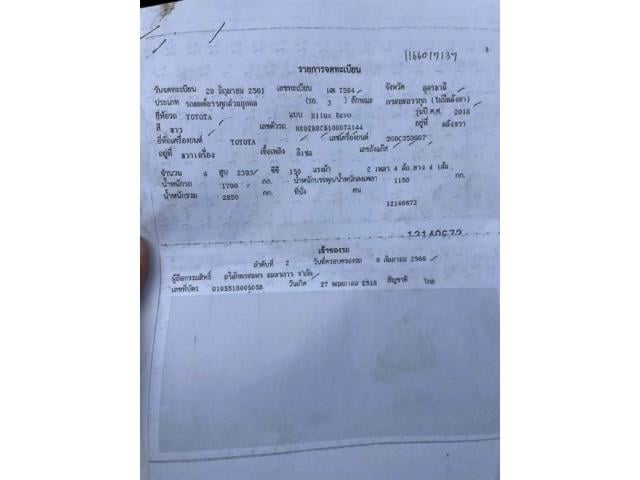 1166017137
3
รายการจดทะเบียน
วันจดทะเบียน 20 มิถุนายน 2561 เลขทะเบียน 7584 จังหวัด อุดรธานี
ประเภท รถยนต์บรรทุกส่วนบุคคล (รย. 3 ) ลักษณะ กระบะบรรทุก (ไม่มีหลังคา)
ยี่ห้อรถ TOYOTA แบบ Hilux Revo รุ่นปี ค.ศ. 2018
สี ขาว เลขตัวรถ อยู่ที่ หลังขวา
ยี่ห้อเครื่องยนต์ TOYOTA เลขเครื่องยนต์
อยู่ที่ ขวาเครื่อง เชื้อเพลิง ดีเซล เลขถังแก๊ส
จำนวน 4 สูบ 2393 ซีซี 150 แรงม้า 2 เพลา 4 ล้อ ยาง 4 เส้น
น้ำหนักรถ 1700 กก. น้ำหนักบรรทุก/น้ำหนักลงเพลา 1150 กก.
น้ำหนักรวม 2850 กก. ที่นั่ง คน
12140672
12140672
เจ้าของรถ
ลำดับที่ 2 วันที่ครอบครองรถ 8 กันยายน 2566
ผู้ถือกรรมสิทธิ์ จำกัด
เลขที่บัตร 0105518005058 วันเกิด 27 พฤษภาคม 2518 สัญชาติ ไทย